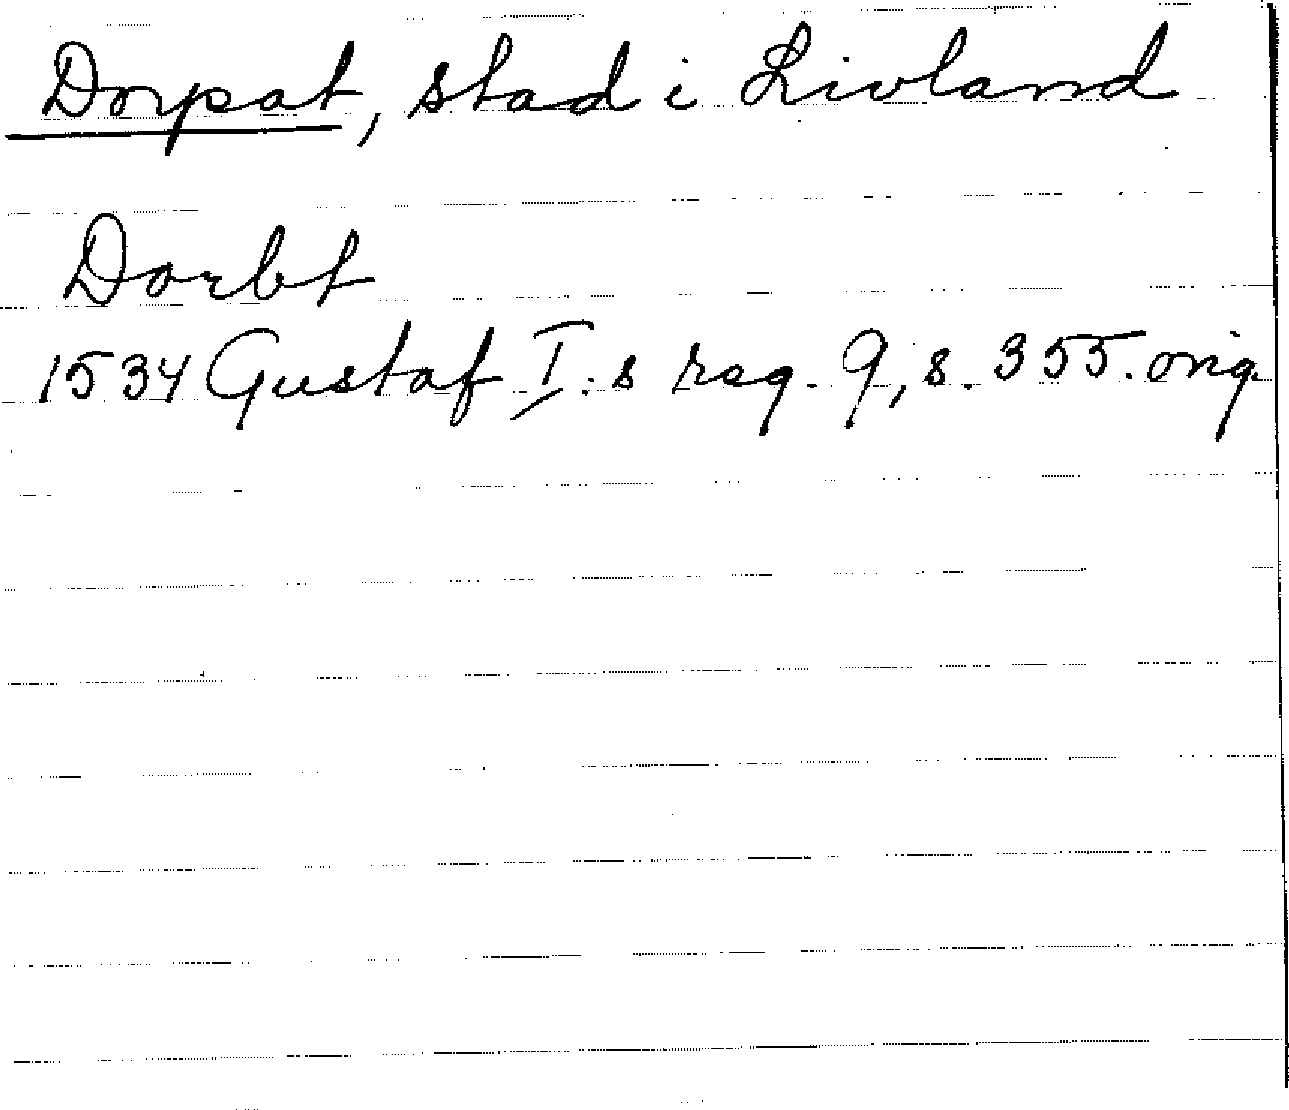 Dorpat, stad i Livland
Dorbt
1534 Gustaf I:s reg. 9, s. 355. orig.